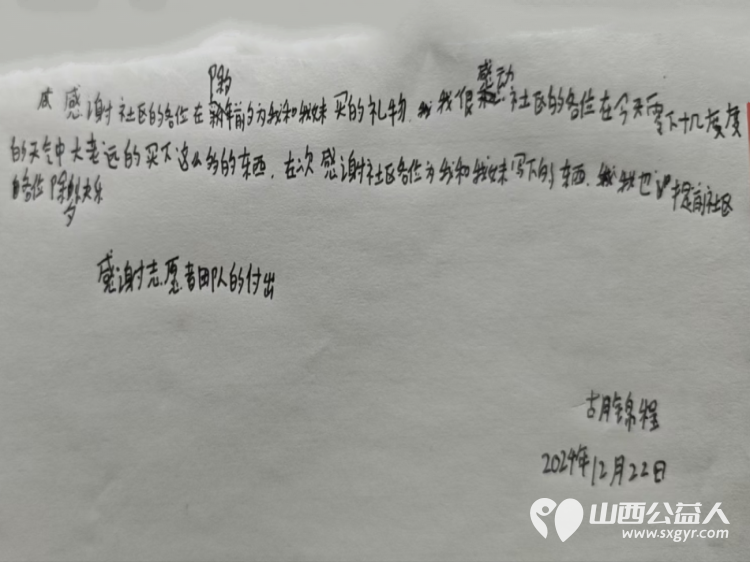 感谢社区的各位在除夕前夕为我和我妹买的礼物,我很感动社区的各位在今天零下十几度度
的天气中大老远的买下这么多的东西,在次感谢社区各位为我和我妹写下的东西,我也提前社区
的各位除夕快乐
感谢志愿者团队的付出
胡锦程
2024年12月22日
山西公益人
www.sxgyr.com